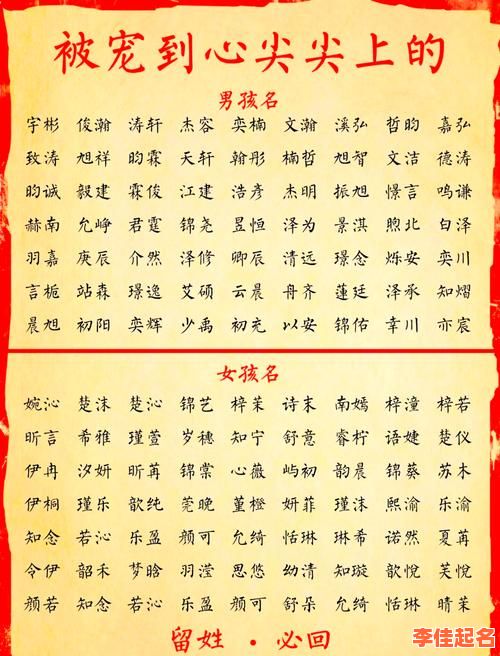 被宠到心尖尖上的
男孩名
宇彬 俊瀚 涛轩 杰容 奕楠 文瀚 溪弘 哲昀 嘉弘
致涛 旭祥 昀霖 天轩 翰彤 楠哲 旭智 文洁 德涛
昀诚 毅建 霖俊 江建 浩彦 杰明 振旭 憬言 鸣谦
赫南 允峥 君霆 锦尧 昱恒 泽为 景淇 煦北 白泽
羽嘉 庚辰 介然 泽修 卿辰 清远 璟念 烁安 奕川
言栀 站森 璟逸 艾硕 云晨 舟齐 莲廷 泽承 知熠
晨旭 初阳 奕辉 少禹 初充 以安 锦佑 幸川 亦宸
女孩名
婉沁 楚沫 楚沁 锦艺 梓茉 诗末 南嫣 梓潼 梓若
昕言 希雅 瑾萱 岁穗 知宁 舒意 睿柠 语婕 楚仪
伊冉 汐妍 昕苒 锦棠 心薇 屿初 韵晨 锦葵 苏木
伊桐 瑾乐 歆纯 莞晚 董橙 妍菲 瑾沫 熙渝 乐渝
知念 若沁 乐盈 颜可 允绮 恬琳 琳希 诺然 夏苒
令伊 韶禾 梦晗 羽滢 思悠 幼清 知璇 歆悦 芙悦
颜若 知念 若沁 乐盈 颜可 舒朵 允绮 恬琳 晴茉
留姓·必回
李佳起名